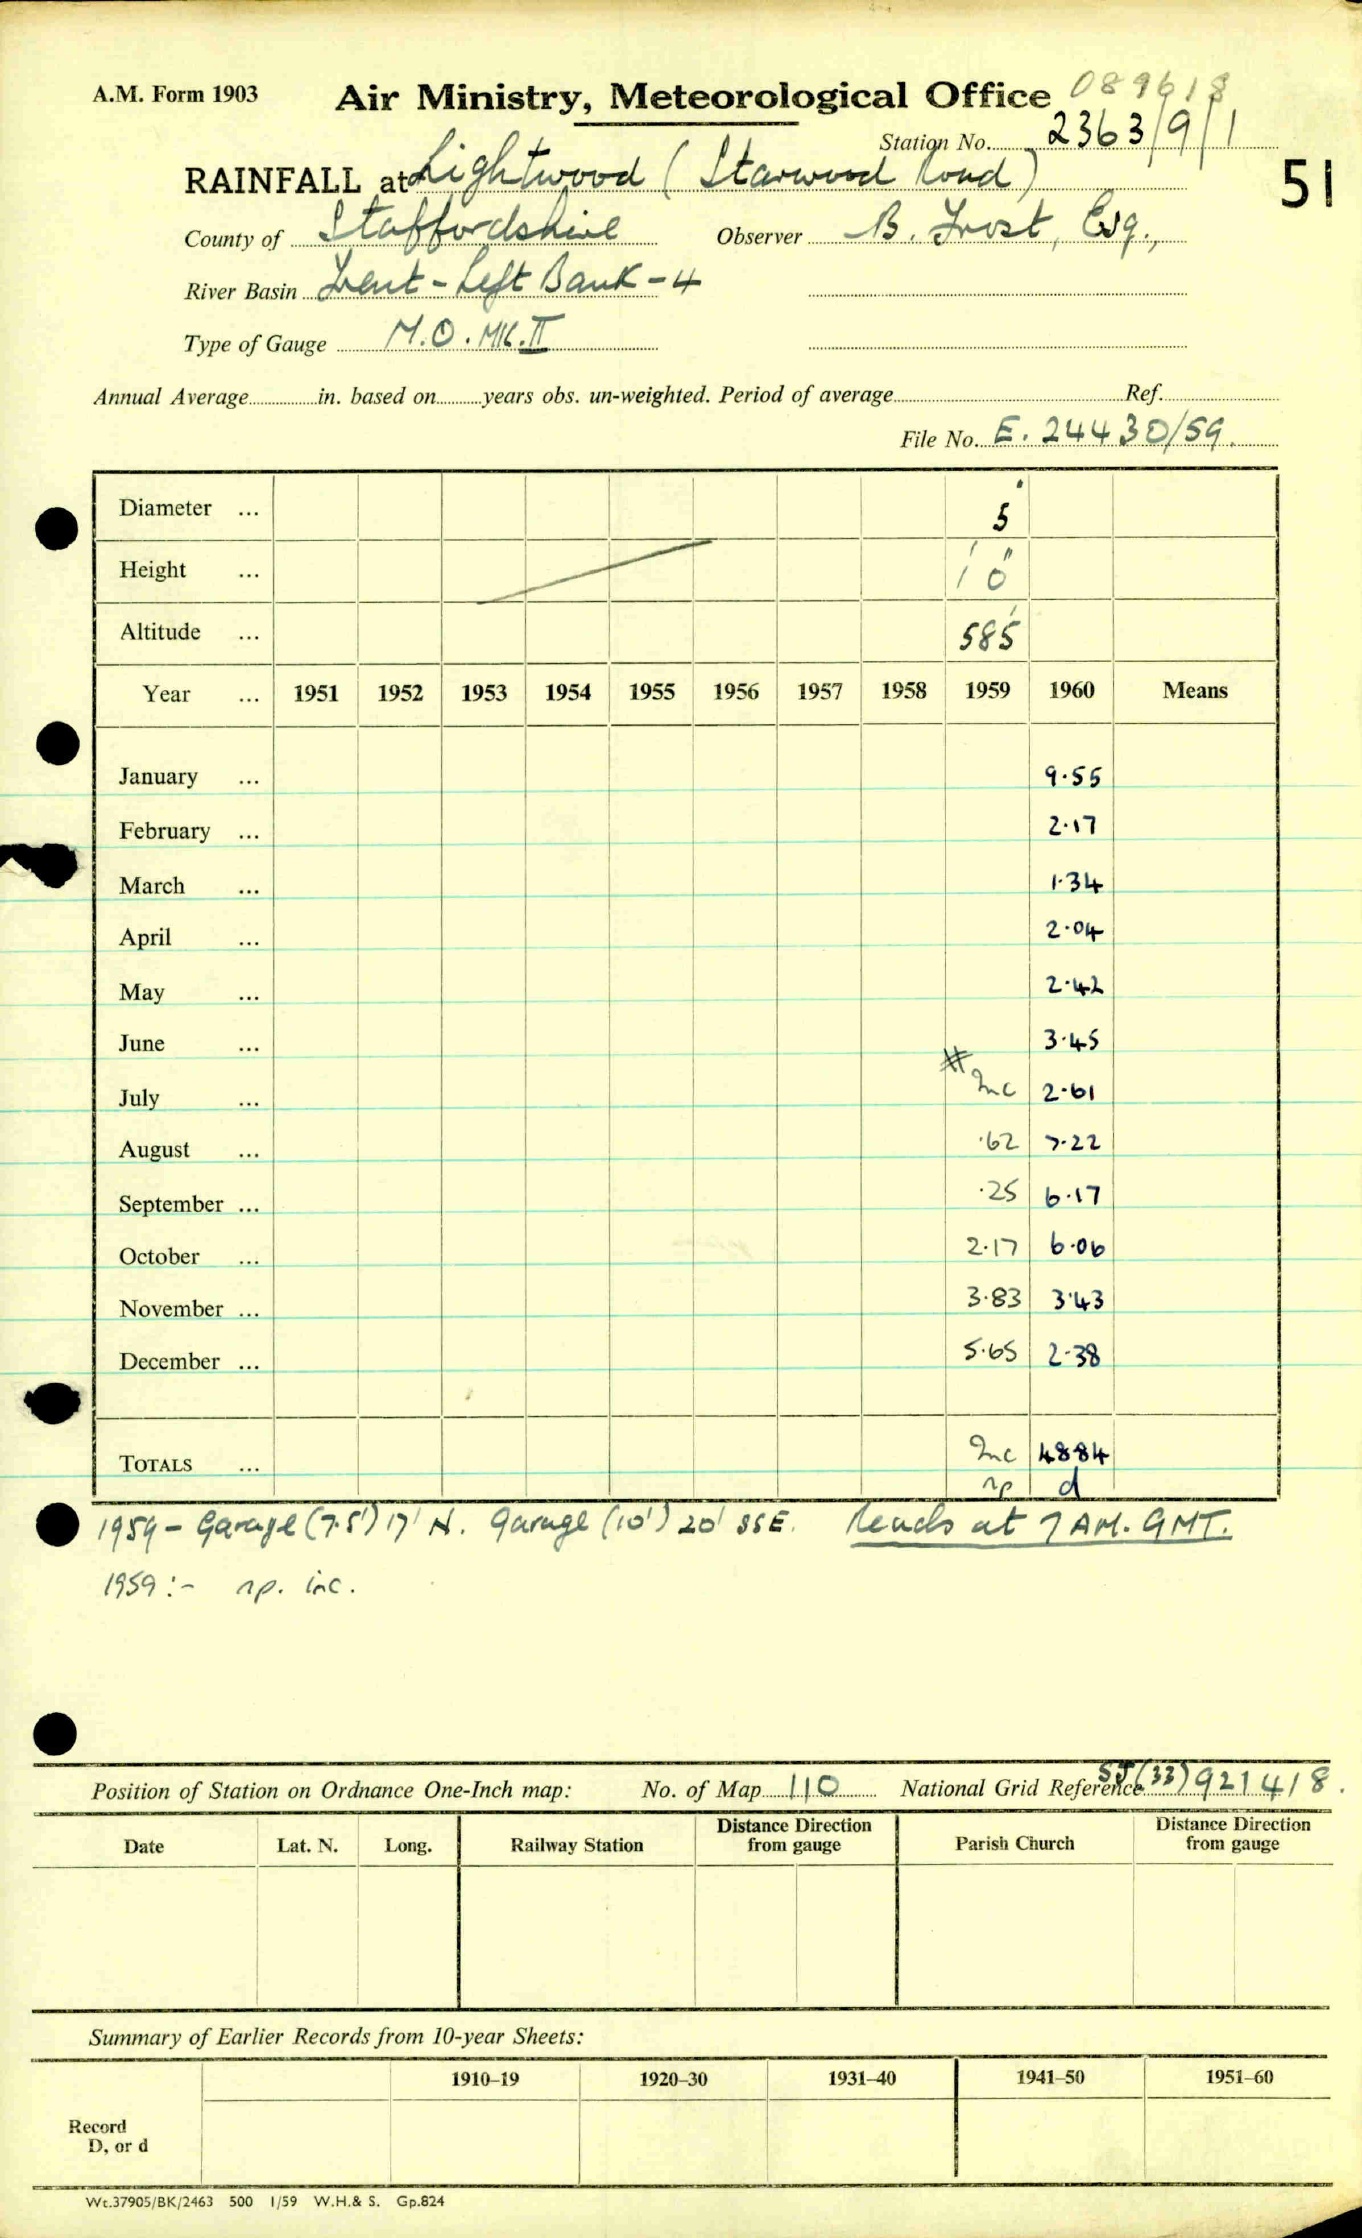 A.M. Form 1903 Air Ministry, Meteorological Office 089618
Station No. 2363/9/1
RAINFALL at Lightwood (Starwood Road) 51
County of Staffordshire Observer B. Frost, Esq.,
River Basin Trent - Left Bank - 4
Type of Gauge M.O. MK. II
Annual Average in. based on years obs. un-weighted. Period of average Ref.
File No. E. 24430/59.
Diameter ... 5"
Height ... 1' 0"
Altitude ... 585'
Year ... 1951 1952 1953 1954 1955 1956 1957 1958 1959 1960 Means
January ... 9.55
February ... 2.17
March ... 1.34
April ... 2.04
May ... 2.42
June ... 3.45
July ... # Inc 2.61
August ... .62 7.22
September ... .25 6.17
October ... 2.17 6.06
November ... 3.83 3.43
December ... 5.65 2.38
TOTALS ... Inc 48.84
np d
1959 - Garage (7.5') 17' N. Garage (10') 20' SSE. Reads at 7 AM. GMT.
1959 :- np. inc.
Position of Station on Ordnance One-Inch map: No. of Map 110 National Grid Reference SJ (33) 921418.
Date Lat. N. Long. Railway Station Distance Direction from gauge Parish Church Distance Direction from gauge
Summary of Earlier Records from 10-year Sheets:
1910–19 1920–30 1931–40 1941–50 1951–60
Record
D, or d
Wt.37905/BK/2463 500 1/59 W.H.& S. Gp.824